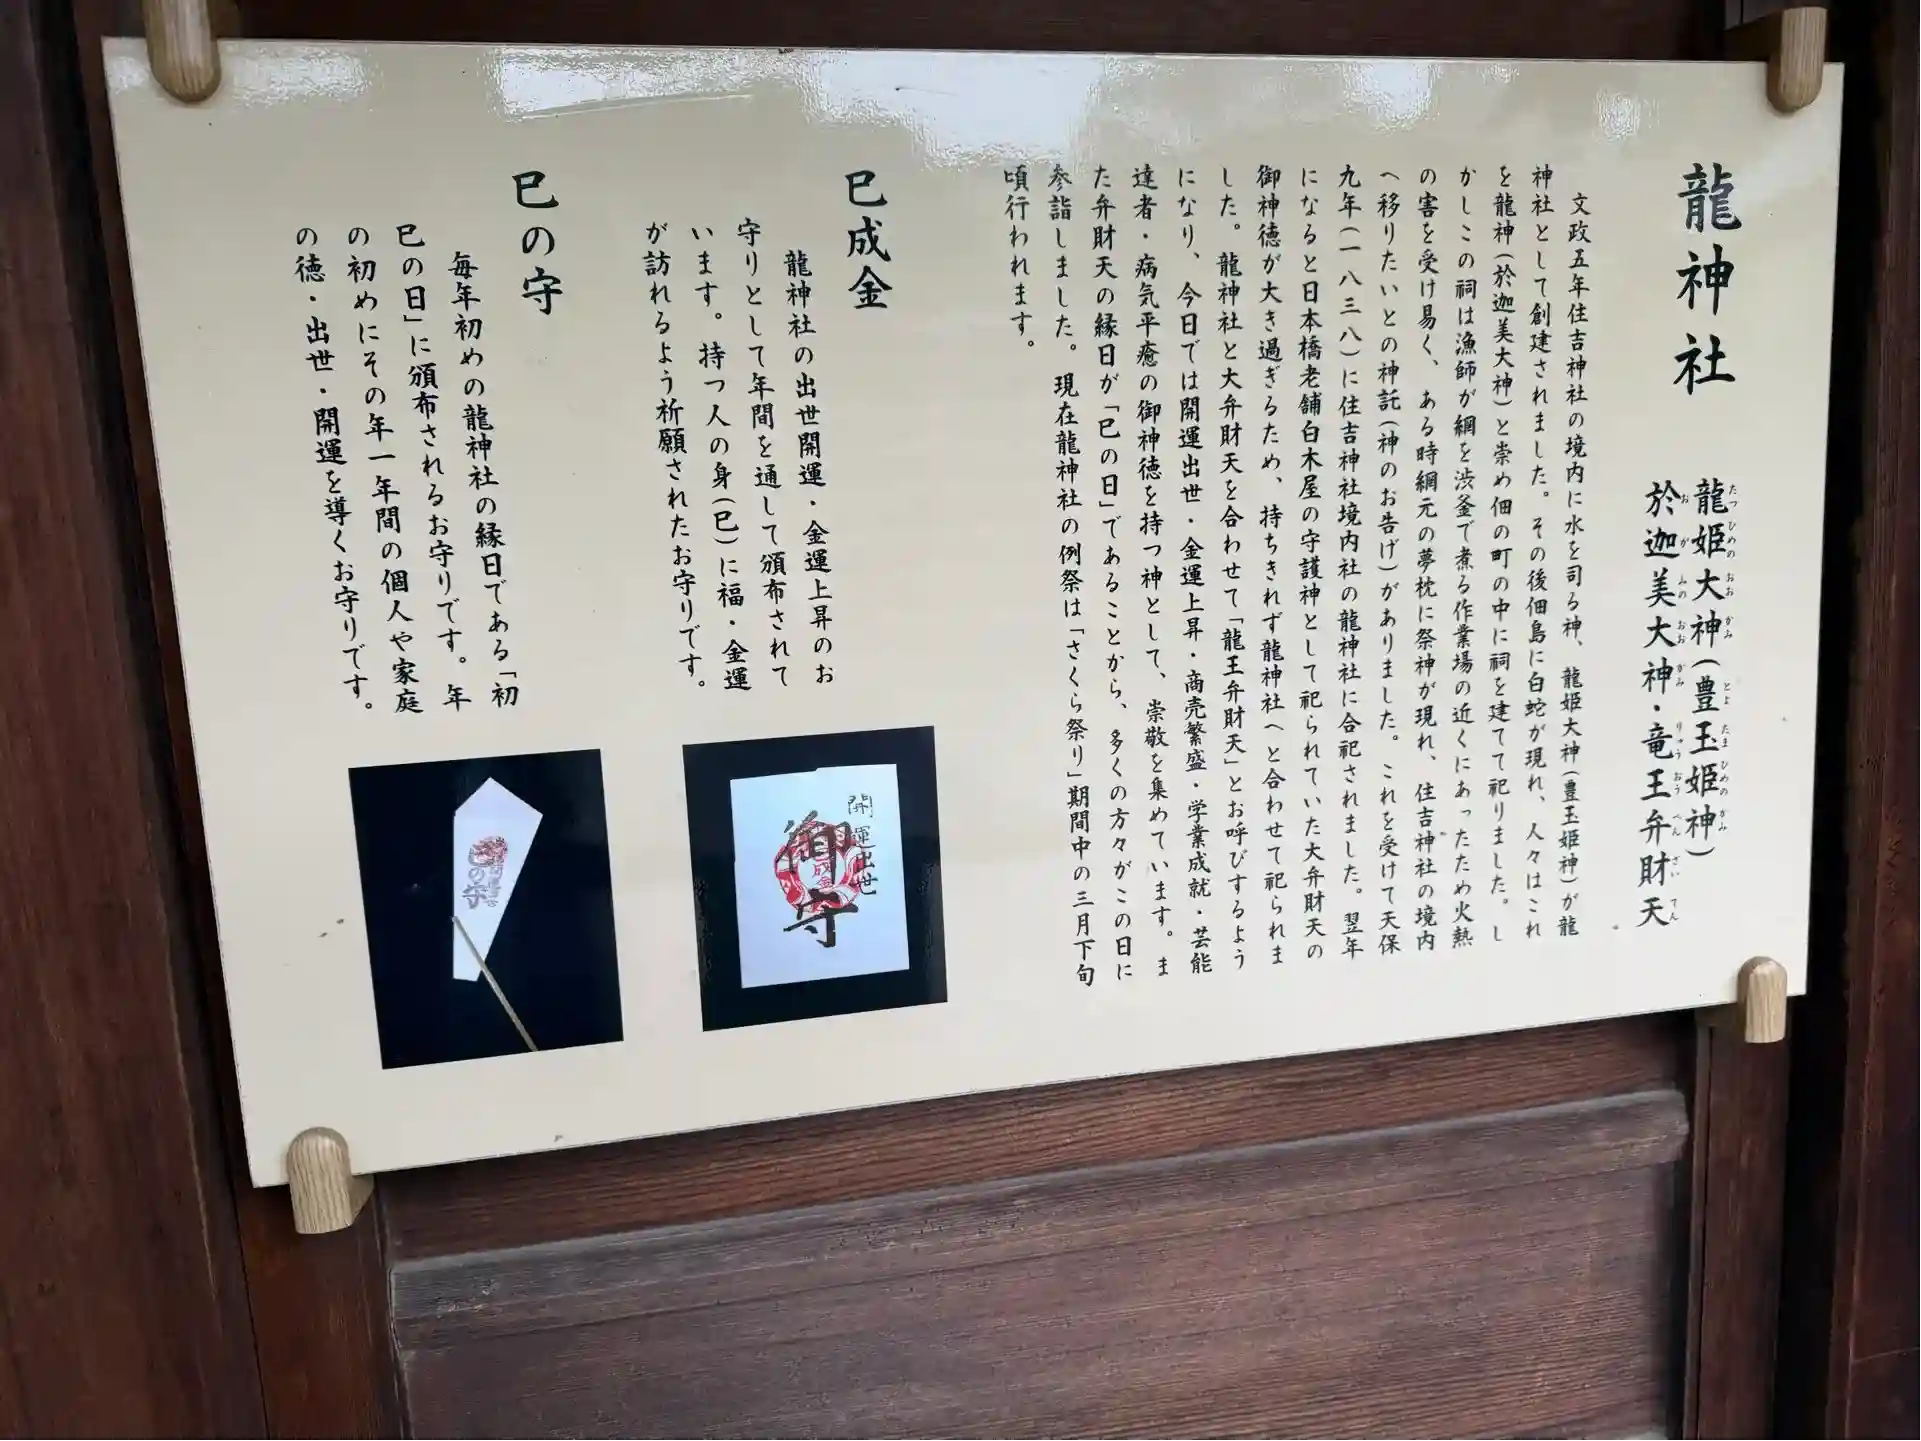 龍神社
龍姫大神(豊玉姫神)
たつひめのおおかみ とよたまひめのかみ
於迦美大神・竜王弁財天
おがみのおおがみ りゅうおうべんざいてん
文政五年住吉神社の境内に水を司る神、龍姫大神(豊玉姫神)が龍
神社として創建されました。その後佃島に白蛇が現れ、人々はこれ
を龍神(於迦美大神)と崇め佃の町の中に祠を建てて祀りました。し
かしこの祠は漁師が網を渋釜で煮る作業場の近くにあったため火熱
の害を受け易く、ある時網元の夢枕に祭神が現れ、住吉神社の境内
へ移りたいとの神託(神のお告げ)がありました。これを受けて天保
九年(一八三八)に住吉神社境内社の龍神社に合祀されました。翌年
になると日本橋老舗白木屋の守護神として祀られていた大弁財天の
御神徳が大き過ぎるため、持ちきれず龍神社へと合わせて祀られま
した。龍神社と大弁財天を合わせて「龍王弁財天」とお呼びするよう
になり、今日では開運出世・金運上昇・商売繁盛・学業成就・芸能
達者・病気平癒の御神徳を持つ神として、崇敬を集めています。ま
た弁財天の縁日が「巳の日」であることから、多くの方々がこの日に
参詣しました。現在龍神社の例祭は「さくら祭り」期間中の三月下旬
頃行われます。
巳成金
龍神社の出世開運・金運上昇のお
守りとして年間を通して頒布されて
います。持つ人の身(巳)に福・金運
が訪れるよう祈願されたお守りです。
開運出世
御守
成金
巳の守
毎年初めの龍神社の縁日である「初
巳の日」に頒布されるお守りです。年
の初めにその年一年間の個人や家庭
の徳・出世・開運を導くお守りです。
巳の守